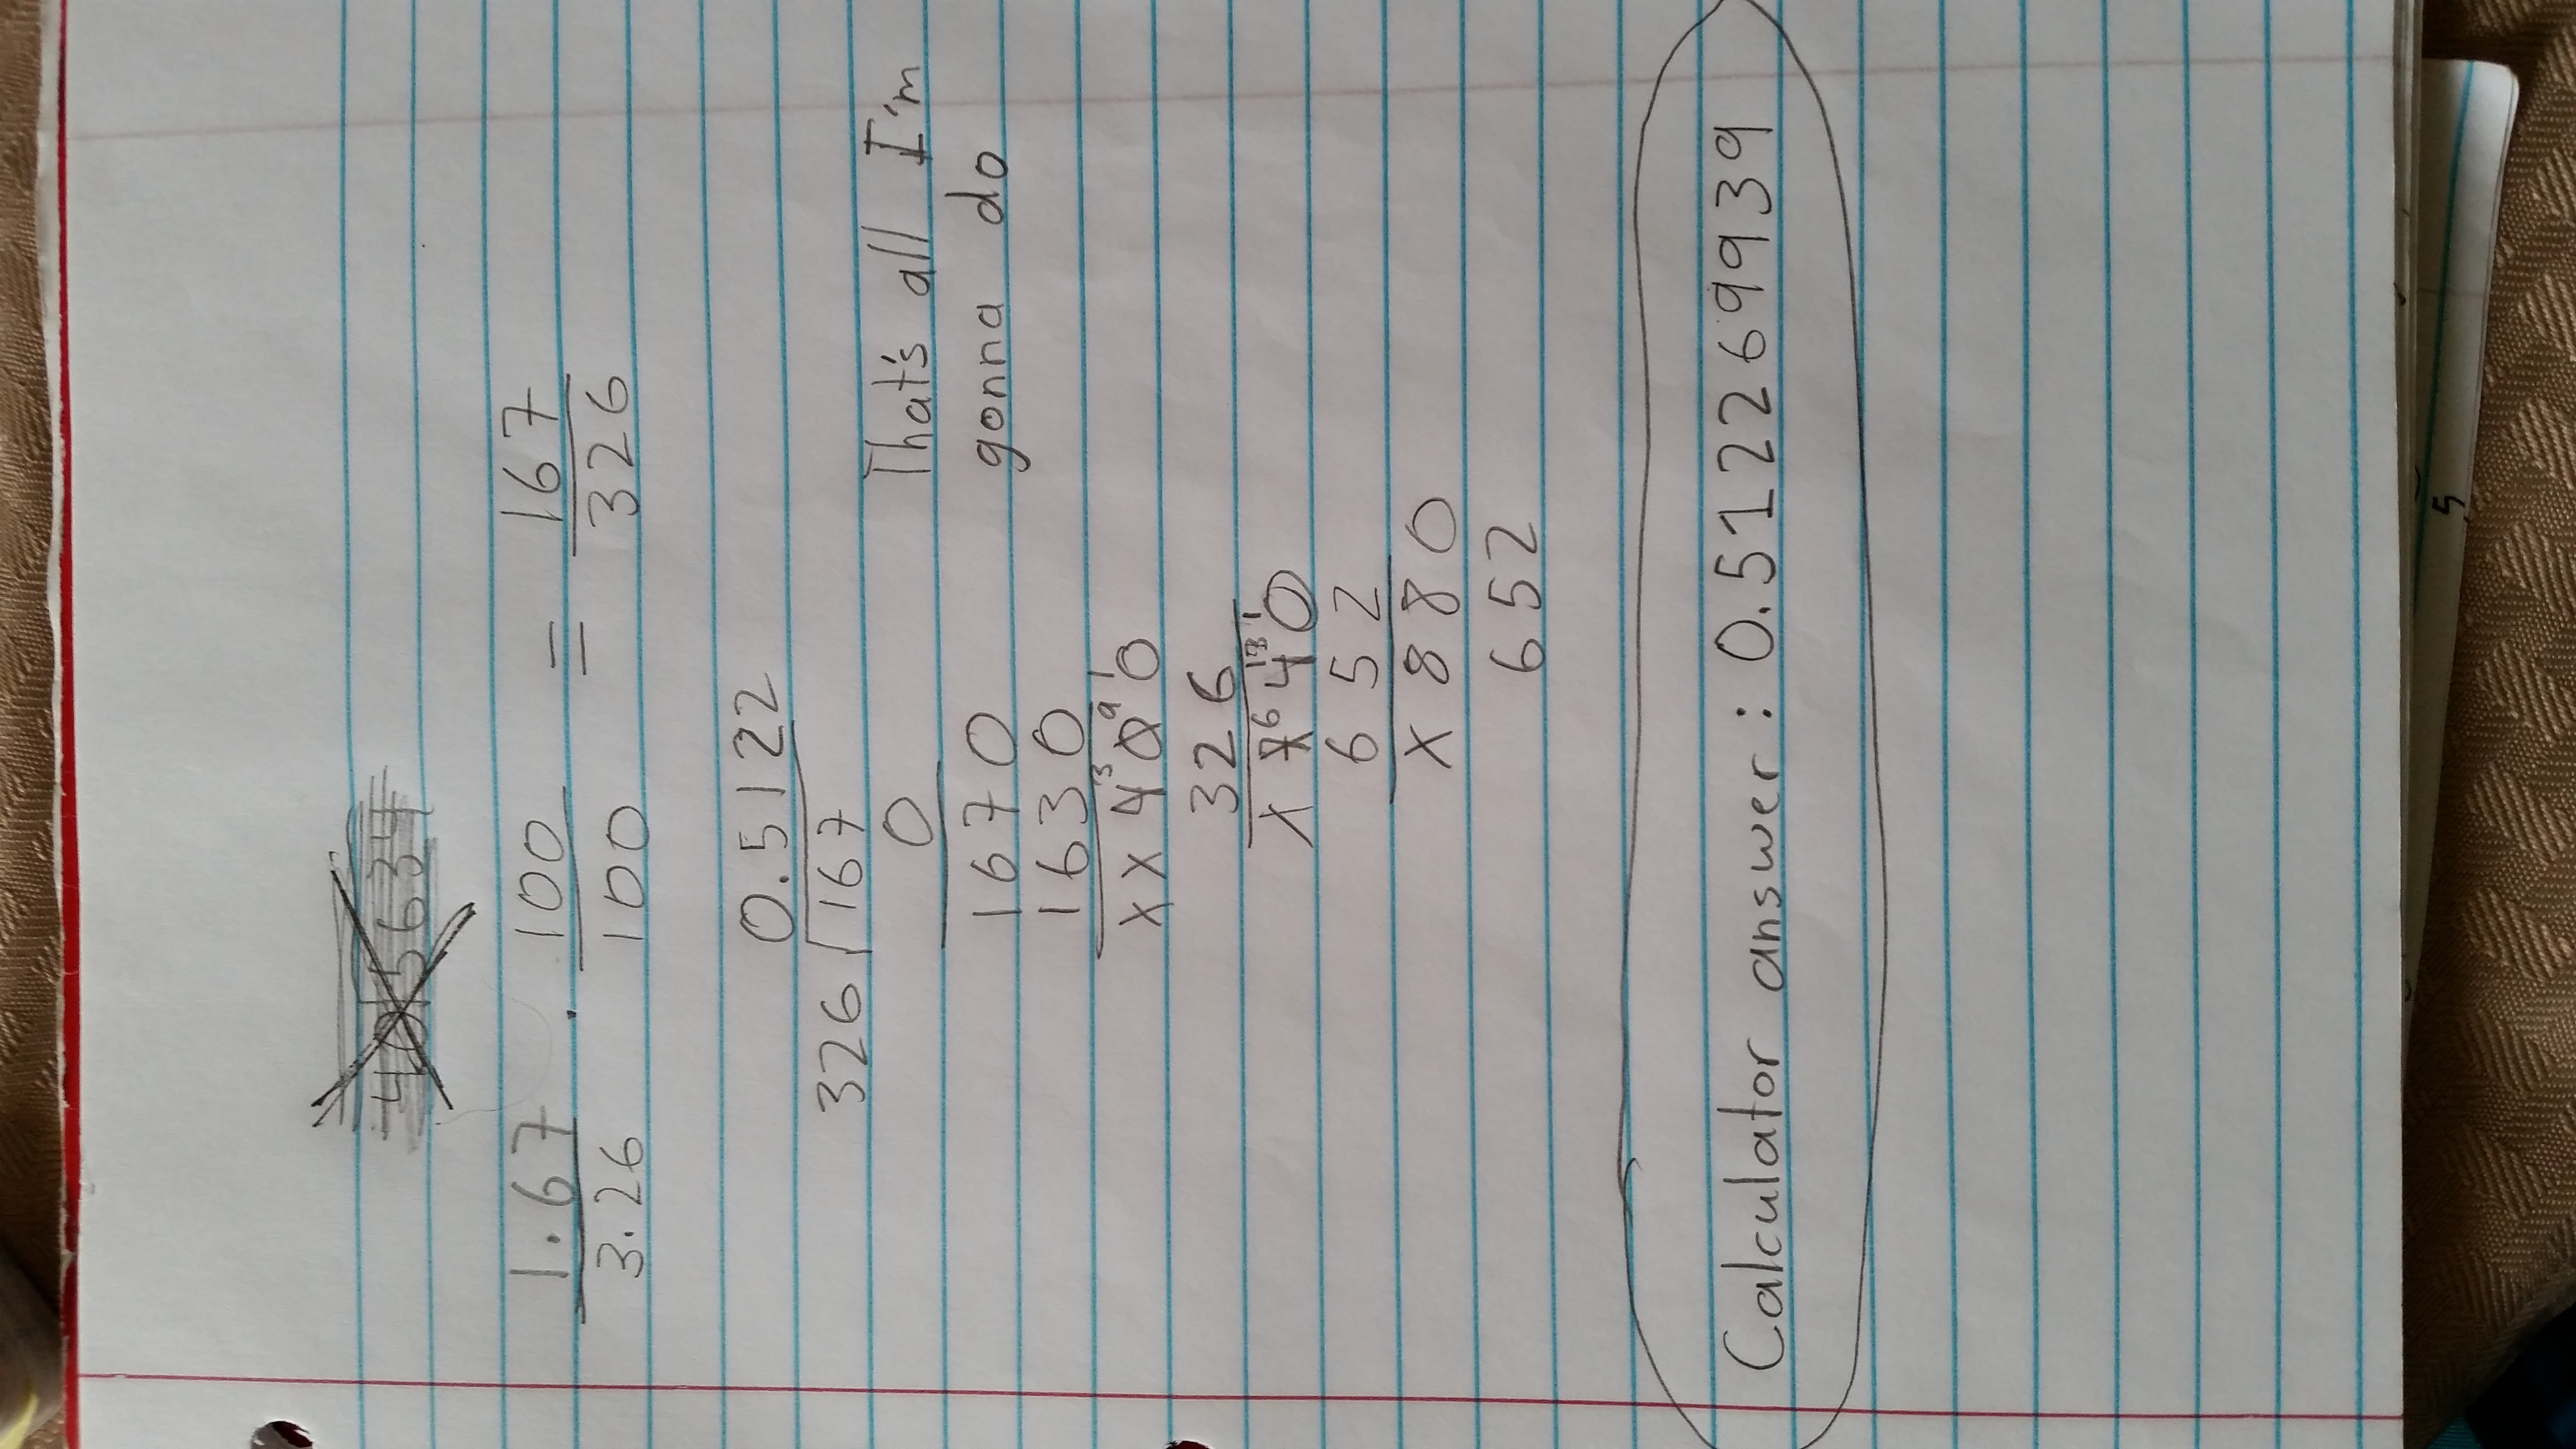 1.67 . 100 = 167
3.26 100 326
0.5122
326 167
0
That's all I'm
1670
gonna do
1630
xx400
326
x740
652
x880
652
Calculator answer: 0.512269939